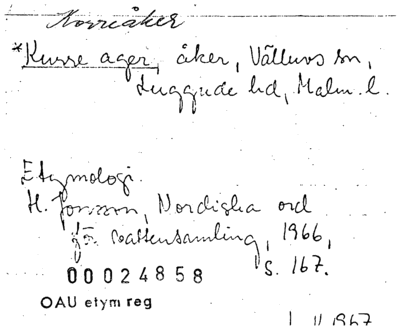 Norreåker
*Kurre ager, åker, Välluvs sn,
Luggude hd, Malm. l.
Etymologi.
H. Jonsson, Nordiska ord
för vattensamling, 1966,
s. 167.
00024858
OAU etym reg
1967